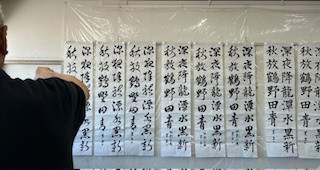 深夜降龍潭水黒新
秋放鶴野田青
深夜降龍潭水黒新
秋放鶴野田青
深夜降龍潭水黒新
秋放鶴野田青
深夜降龍潭水黒新
秋放鶴野田青
深夜降龍潭水黒新
秋放鶴野田青
深夜降龍潭水黒新
秋放鶴野田青